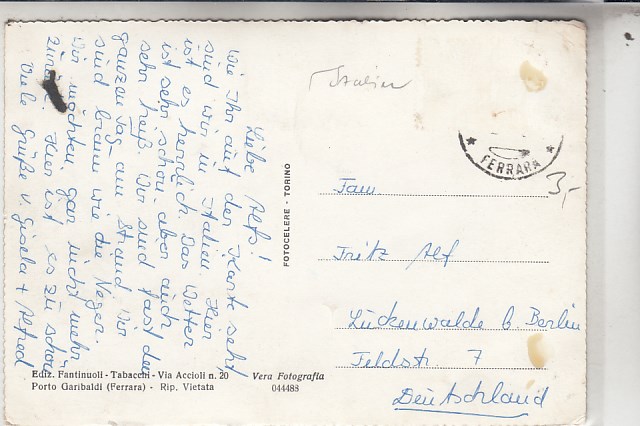 Liebe Alfs!
Wie Ihr auf der Karte seht
sind wir in Italien. Hier
ist es herrlich. Das Wetter
ist sehr schön - aber auch
sehr heiß. Wir sind fast den
ganzen Tag am Strand. Wir
sind braun wie die Neger.
Wir möchten gar nicht mehr
zurück. Hier ist es zu schön
Viele Grüße v. Gisela + Alfred
FOTOCELERE - TORINO
Italien
FERRARA
3,-
Fam.
Fritz Alf
Lückenwalde b. Berlin
Feldstr. 7
Deutschland
Ediz. Fantinuoli - Tabacchi - Via Accioli n. 20
Porto Garibaldi (Ferrara) - Rip. Vietata
Vera Fotografia
044488